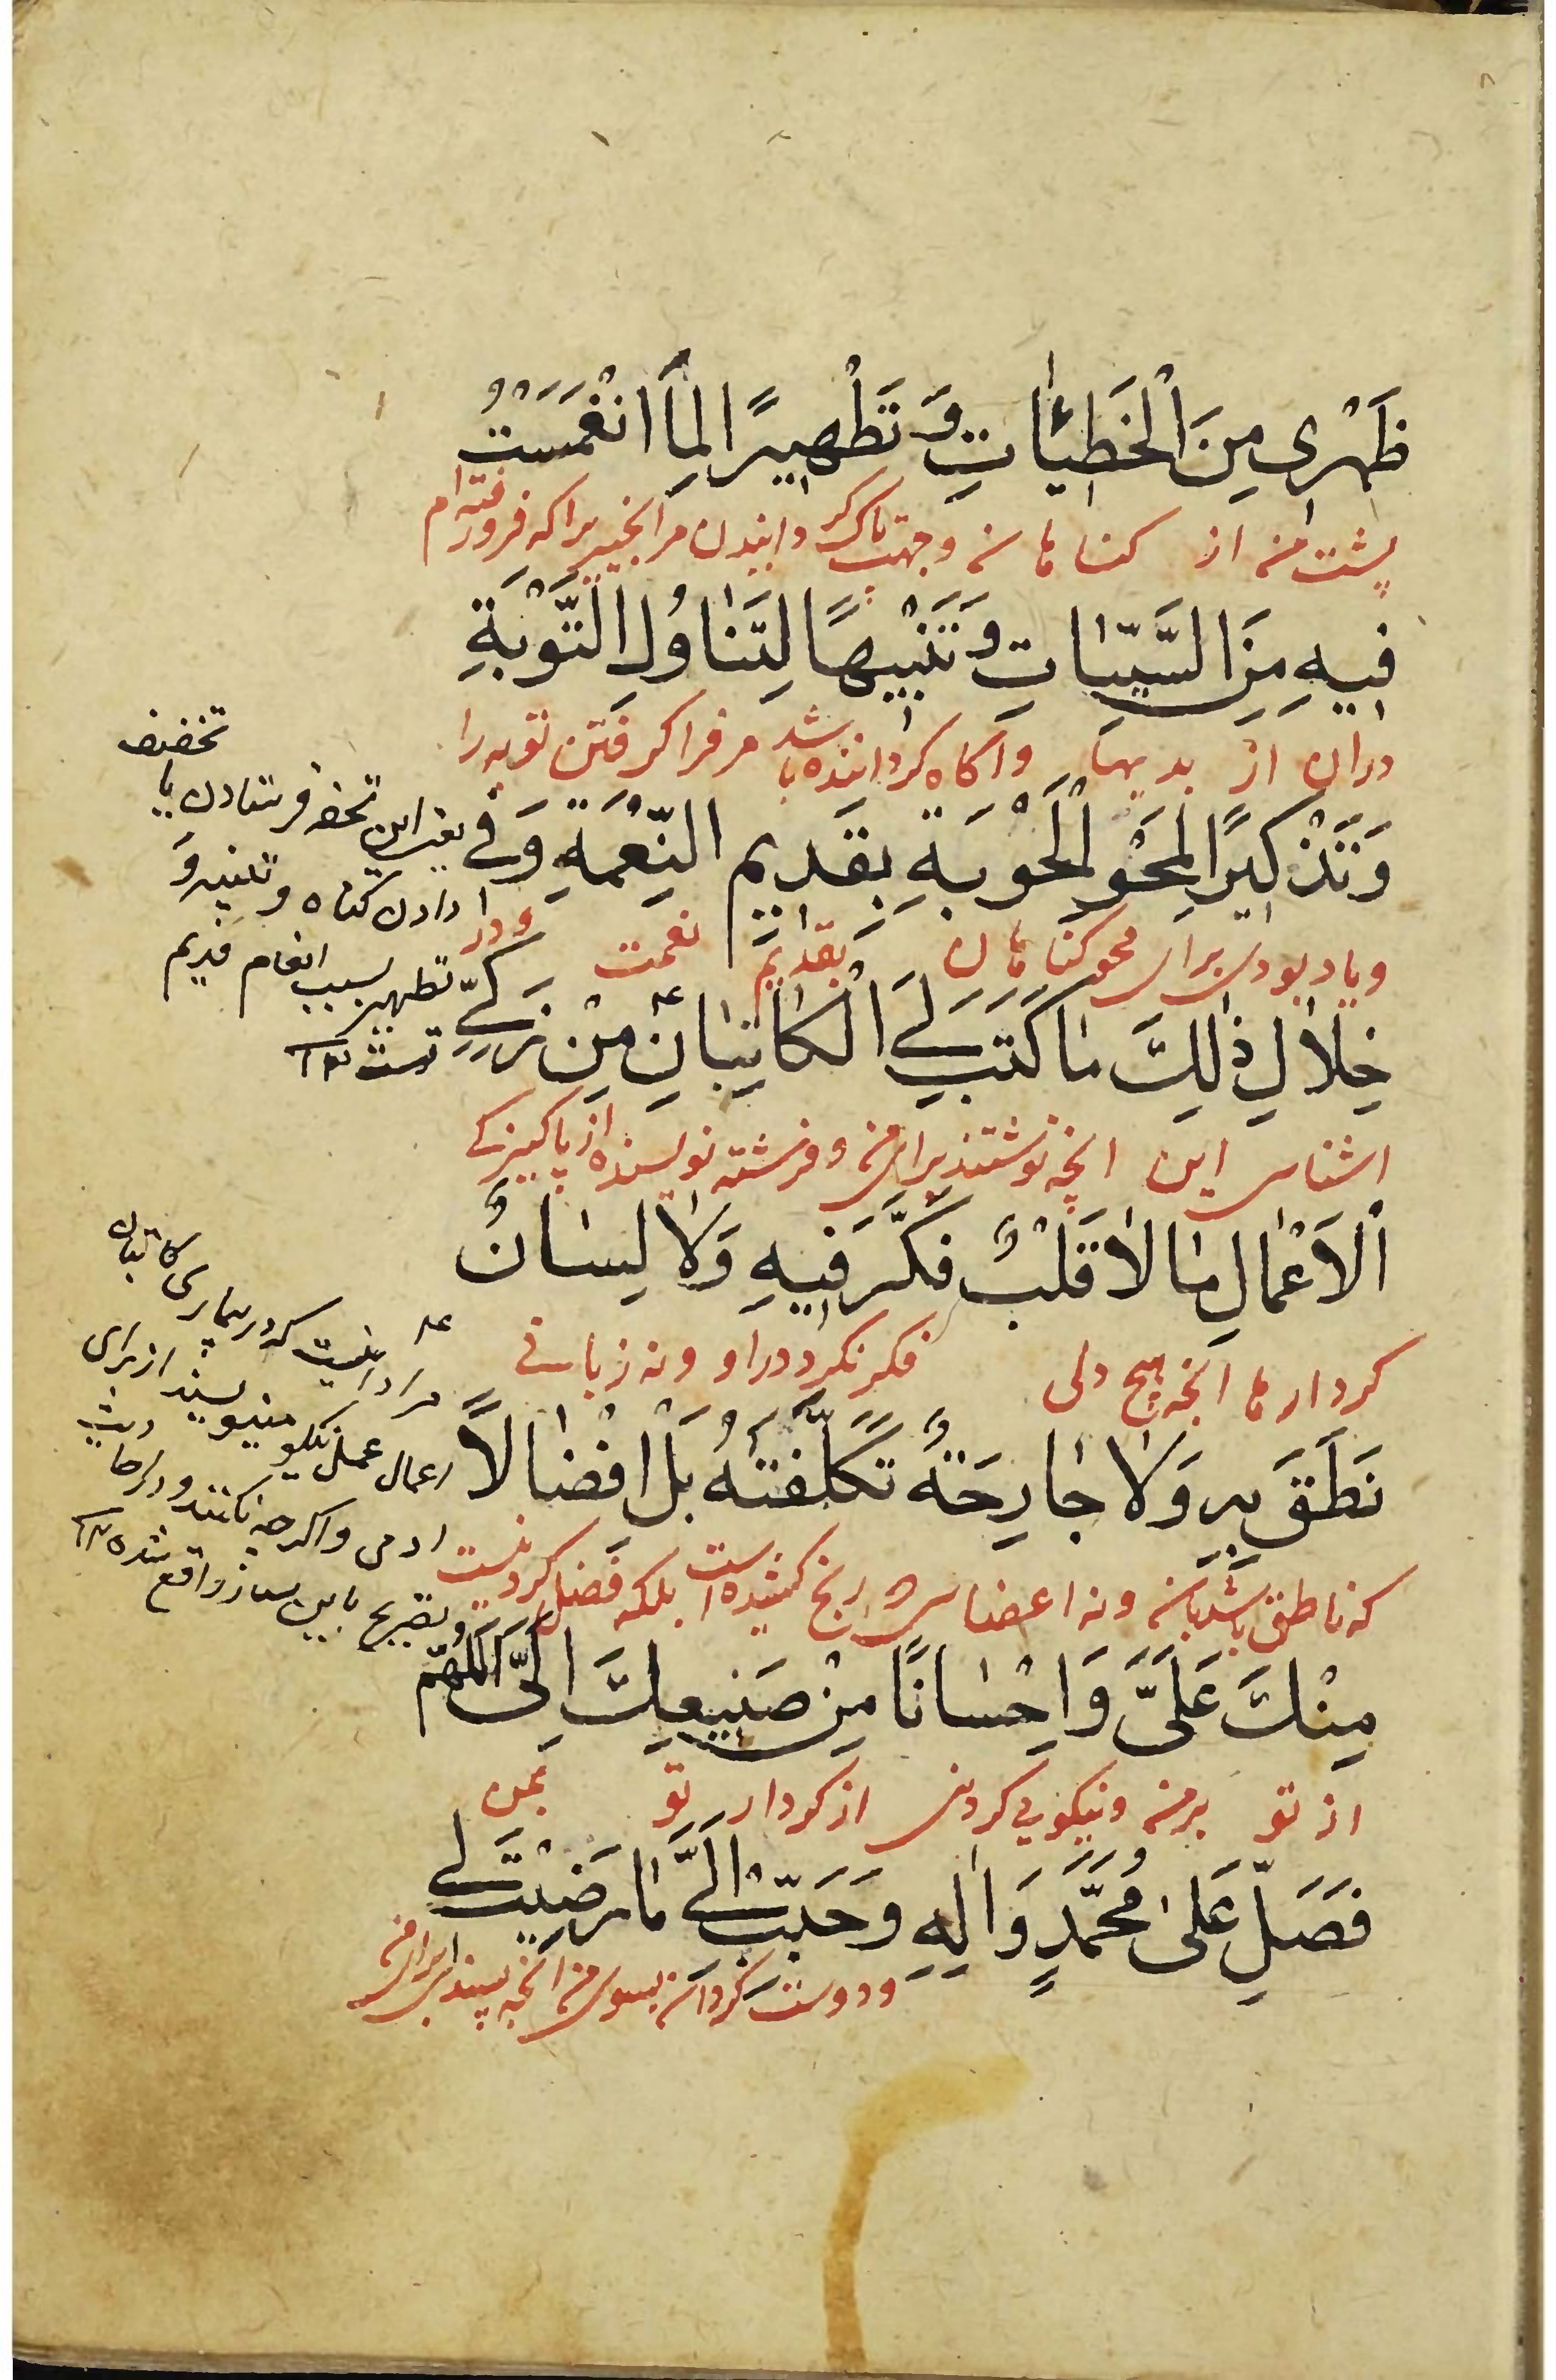 ظَهْرِى مِنَ الْخَطِيئَاتِ وَ تَطْهِيرًا لِمَا انْغَمَسْتُ
پشت من از کناهان و جهت پاک کردانیدن مر انچیز را که فرورفته ام
فِيهِ مِنَ السَّيِّئَاتِ وَ تَنْبِيهًا لِتَنَاوُلِ التَّوْبَةِ
دران از بدیها و اکاه کرداننده باشد مر فرا کرفتن توبه را
وَ تَذْكِيرًا لِمَحْوِ الْحَوْبَةِ بِقَدِيمِ النِّعْمَةِ وَ فِي
و یاد بودی برای محو کناهان بقدیم نعمت و در
خِلَالِ ذٰلِكَ مَا كَتَبَ لِيَ الْكَاتِبَانِ مِنْ زَكِيِّ
اثنای این انچه نوشتند برای من دو فرشته نویسنده از پاکیزکی
الْاَعْمَالِ مَا لَا قَلْبٌ فَكَّرَ فِيهِ وَلَا لِسَانٌ
کردارها انچه هیچ دلی فکر نکرد در او و نه زبانی
نَطَقَ بِهِ وَلَا جَارِحَةٌ تَكَلَّفَتْهُ بَلْ اِفْضَالًا
که ناطق باشد بان و نه اعضای رنج کشیده است بلکه فضل کردنیست
مِنْكَ عَلَيَّ وَ اِحْسَانًا مِنْ صَنِيعِكَ اِلَيَّ اَللّٰهُمَّ
از تو بر من و نیکویی کردنی از کردار تو بمن
فَصَلِّ عَلىٰ مُحَمَّدٍ وَاٰلِهِ وَ حَبِّبْ اِلَيَّ مَا رَضِيتَ لِي
و دوست کردان بسوی من انچه پسندی برای من
تخفیف
یعنی این تحفه فرستادن یا
دادن کناه و تنبیه و
تطهیر بسبب انعام قدیم
تست ۱۲
مراد اینست که در بیماری کاتبان
اعمال عمل نیکو مینویسند از برای
ادمی و اکرچه نکنند و در احادیث
تصریح باین نیز واقع شده ۱۲